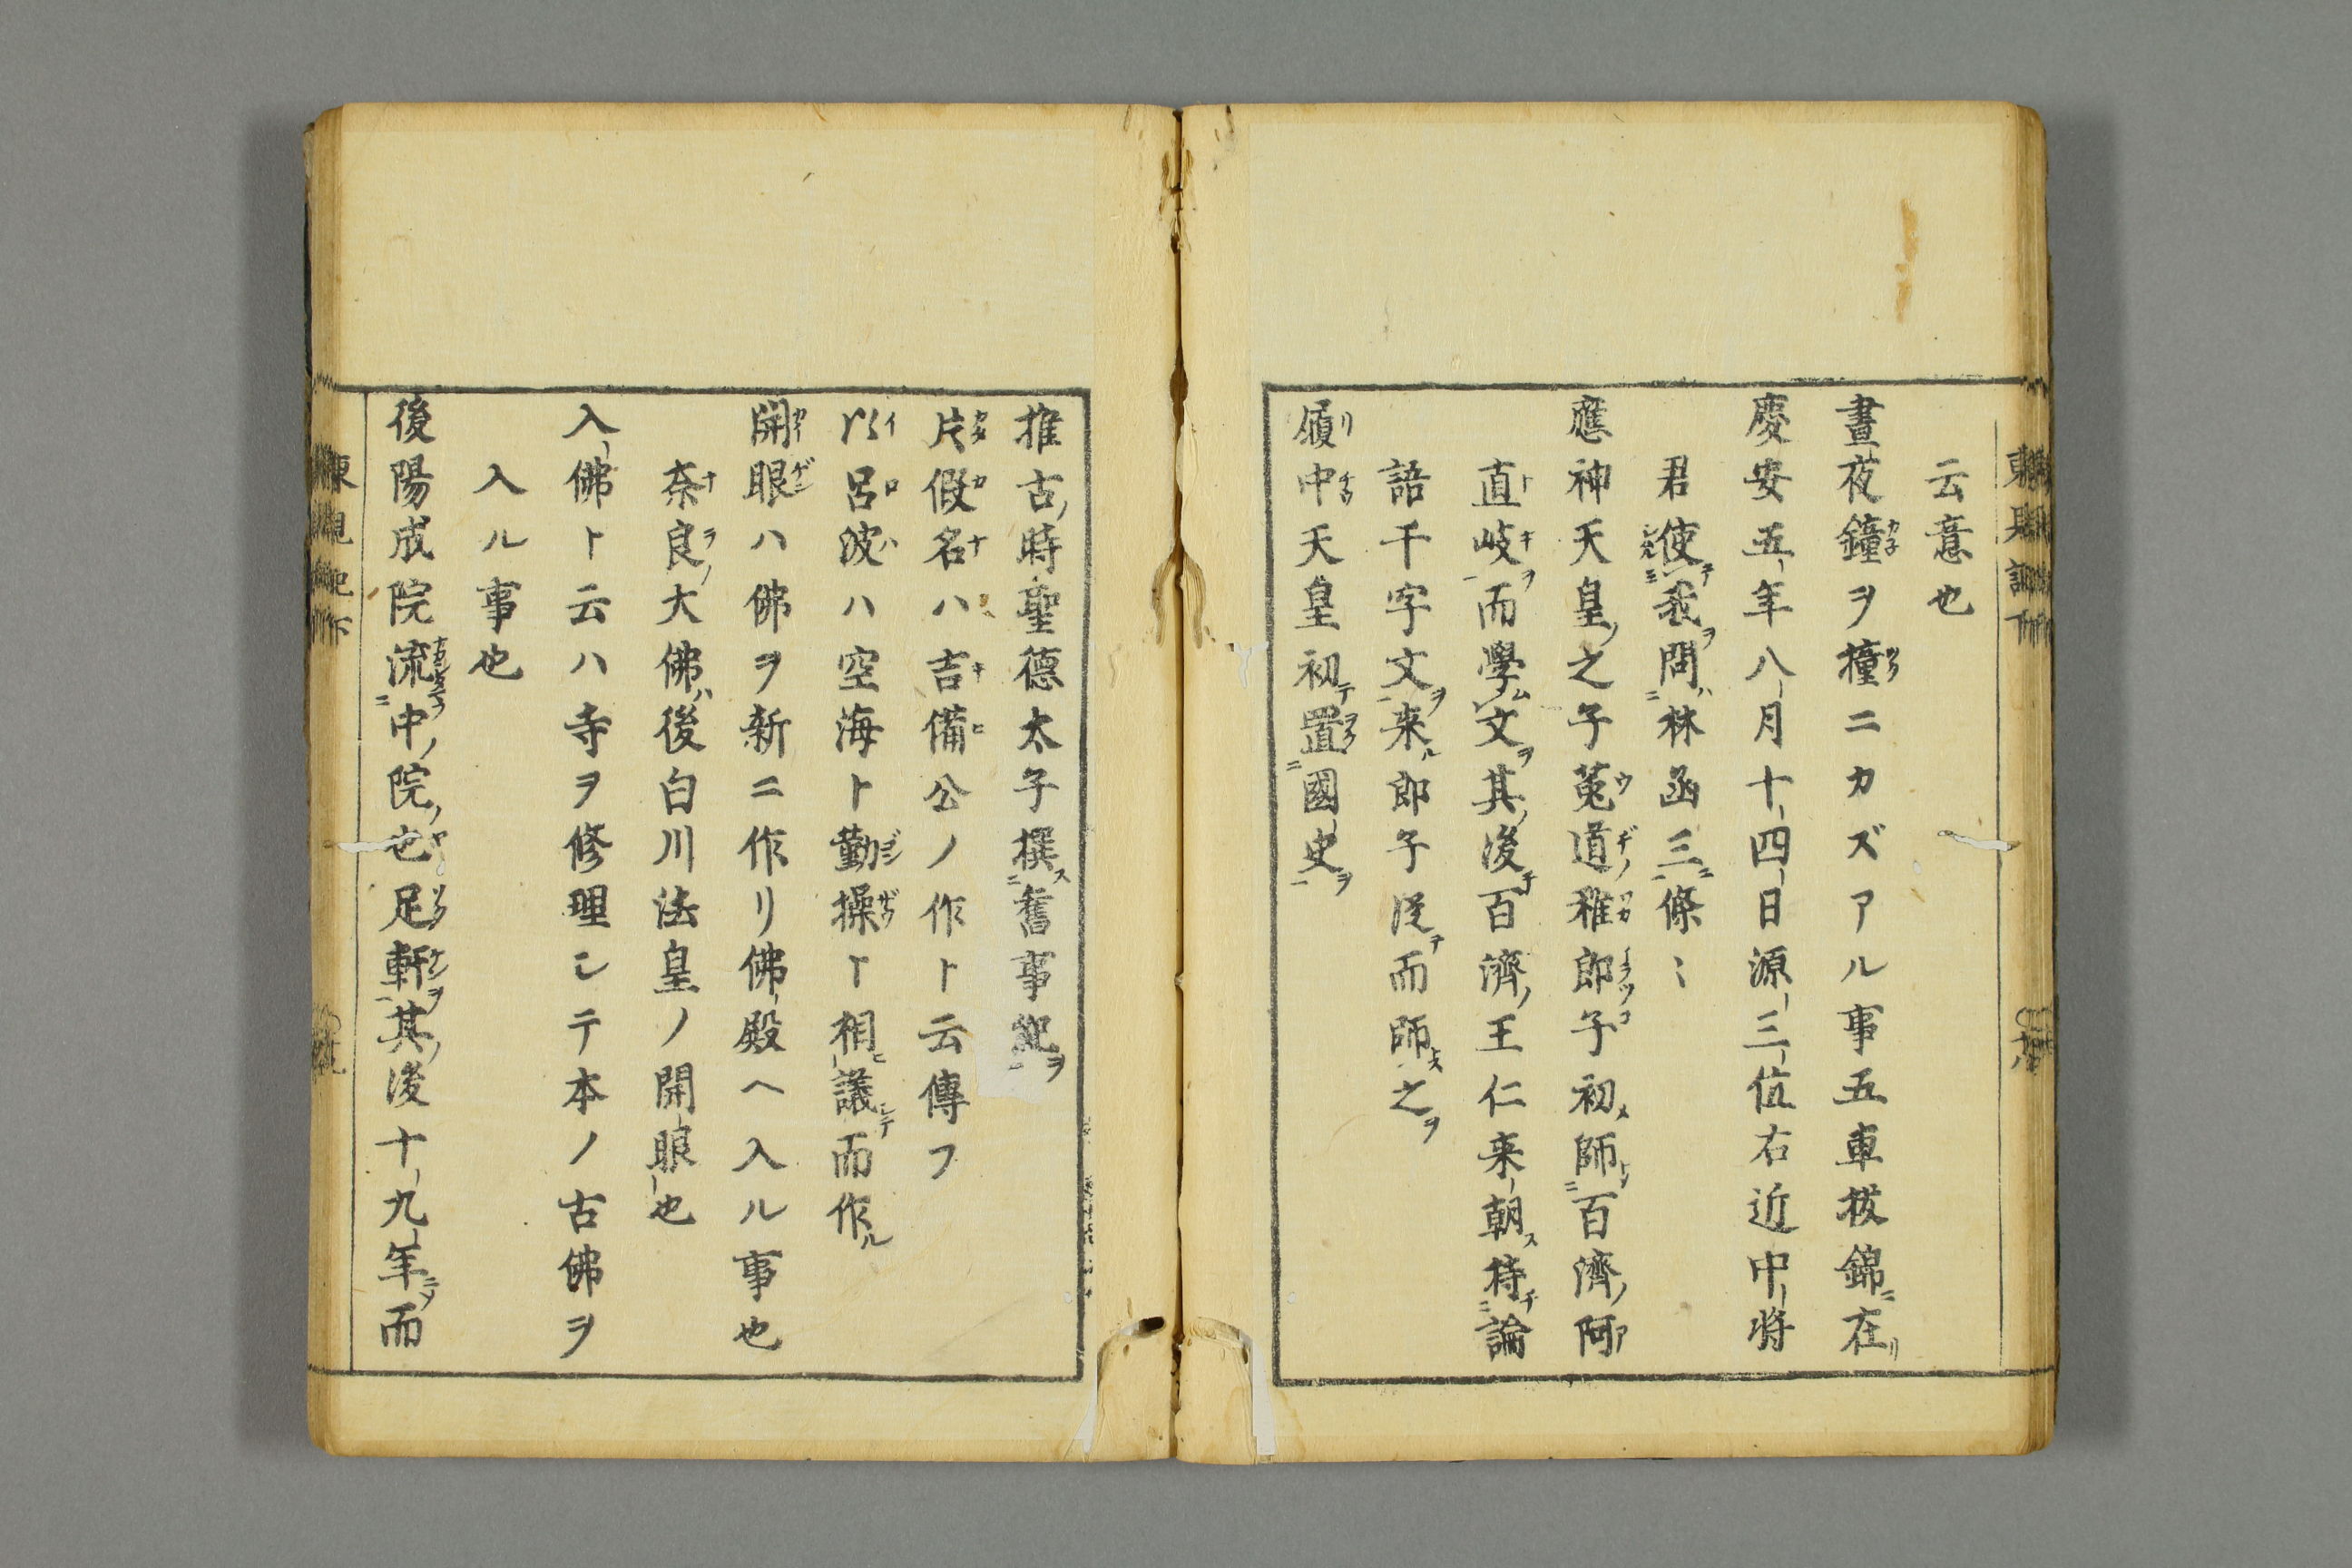 云意也
晝夜鐘ヲ撞ニカズアル事五車拔錦ニ在リ
慶安五年八月十四日源三位右近中將
君使我問林函三條〻
應神天皇之子菟道稚郎子初師百濟阿
直岐而學文其後百濟王仁来朝持論
語千字文来郎子從而師之
履中天皇初置國史
推古時聖德太子撰舊事紀
片假名ハ吉備公ノ作ト云傳フ
以呂波ハ空海ト勤操ト相議而作ル
開眼ハ佛ヲ新ニ作リ佛殿ヘ入ル事也
奈良大佛ハ後白川法皇ノ開眼也
入佛ト云ハ寺ヲ修理シテ本ノ古佛ヲ
入ル事也
後陽成院流中院也足軒其後十九年而